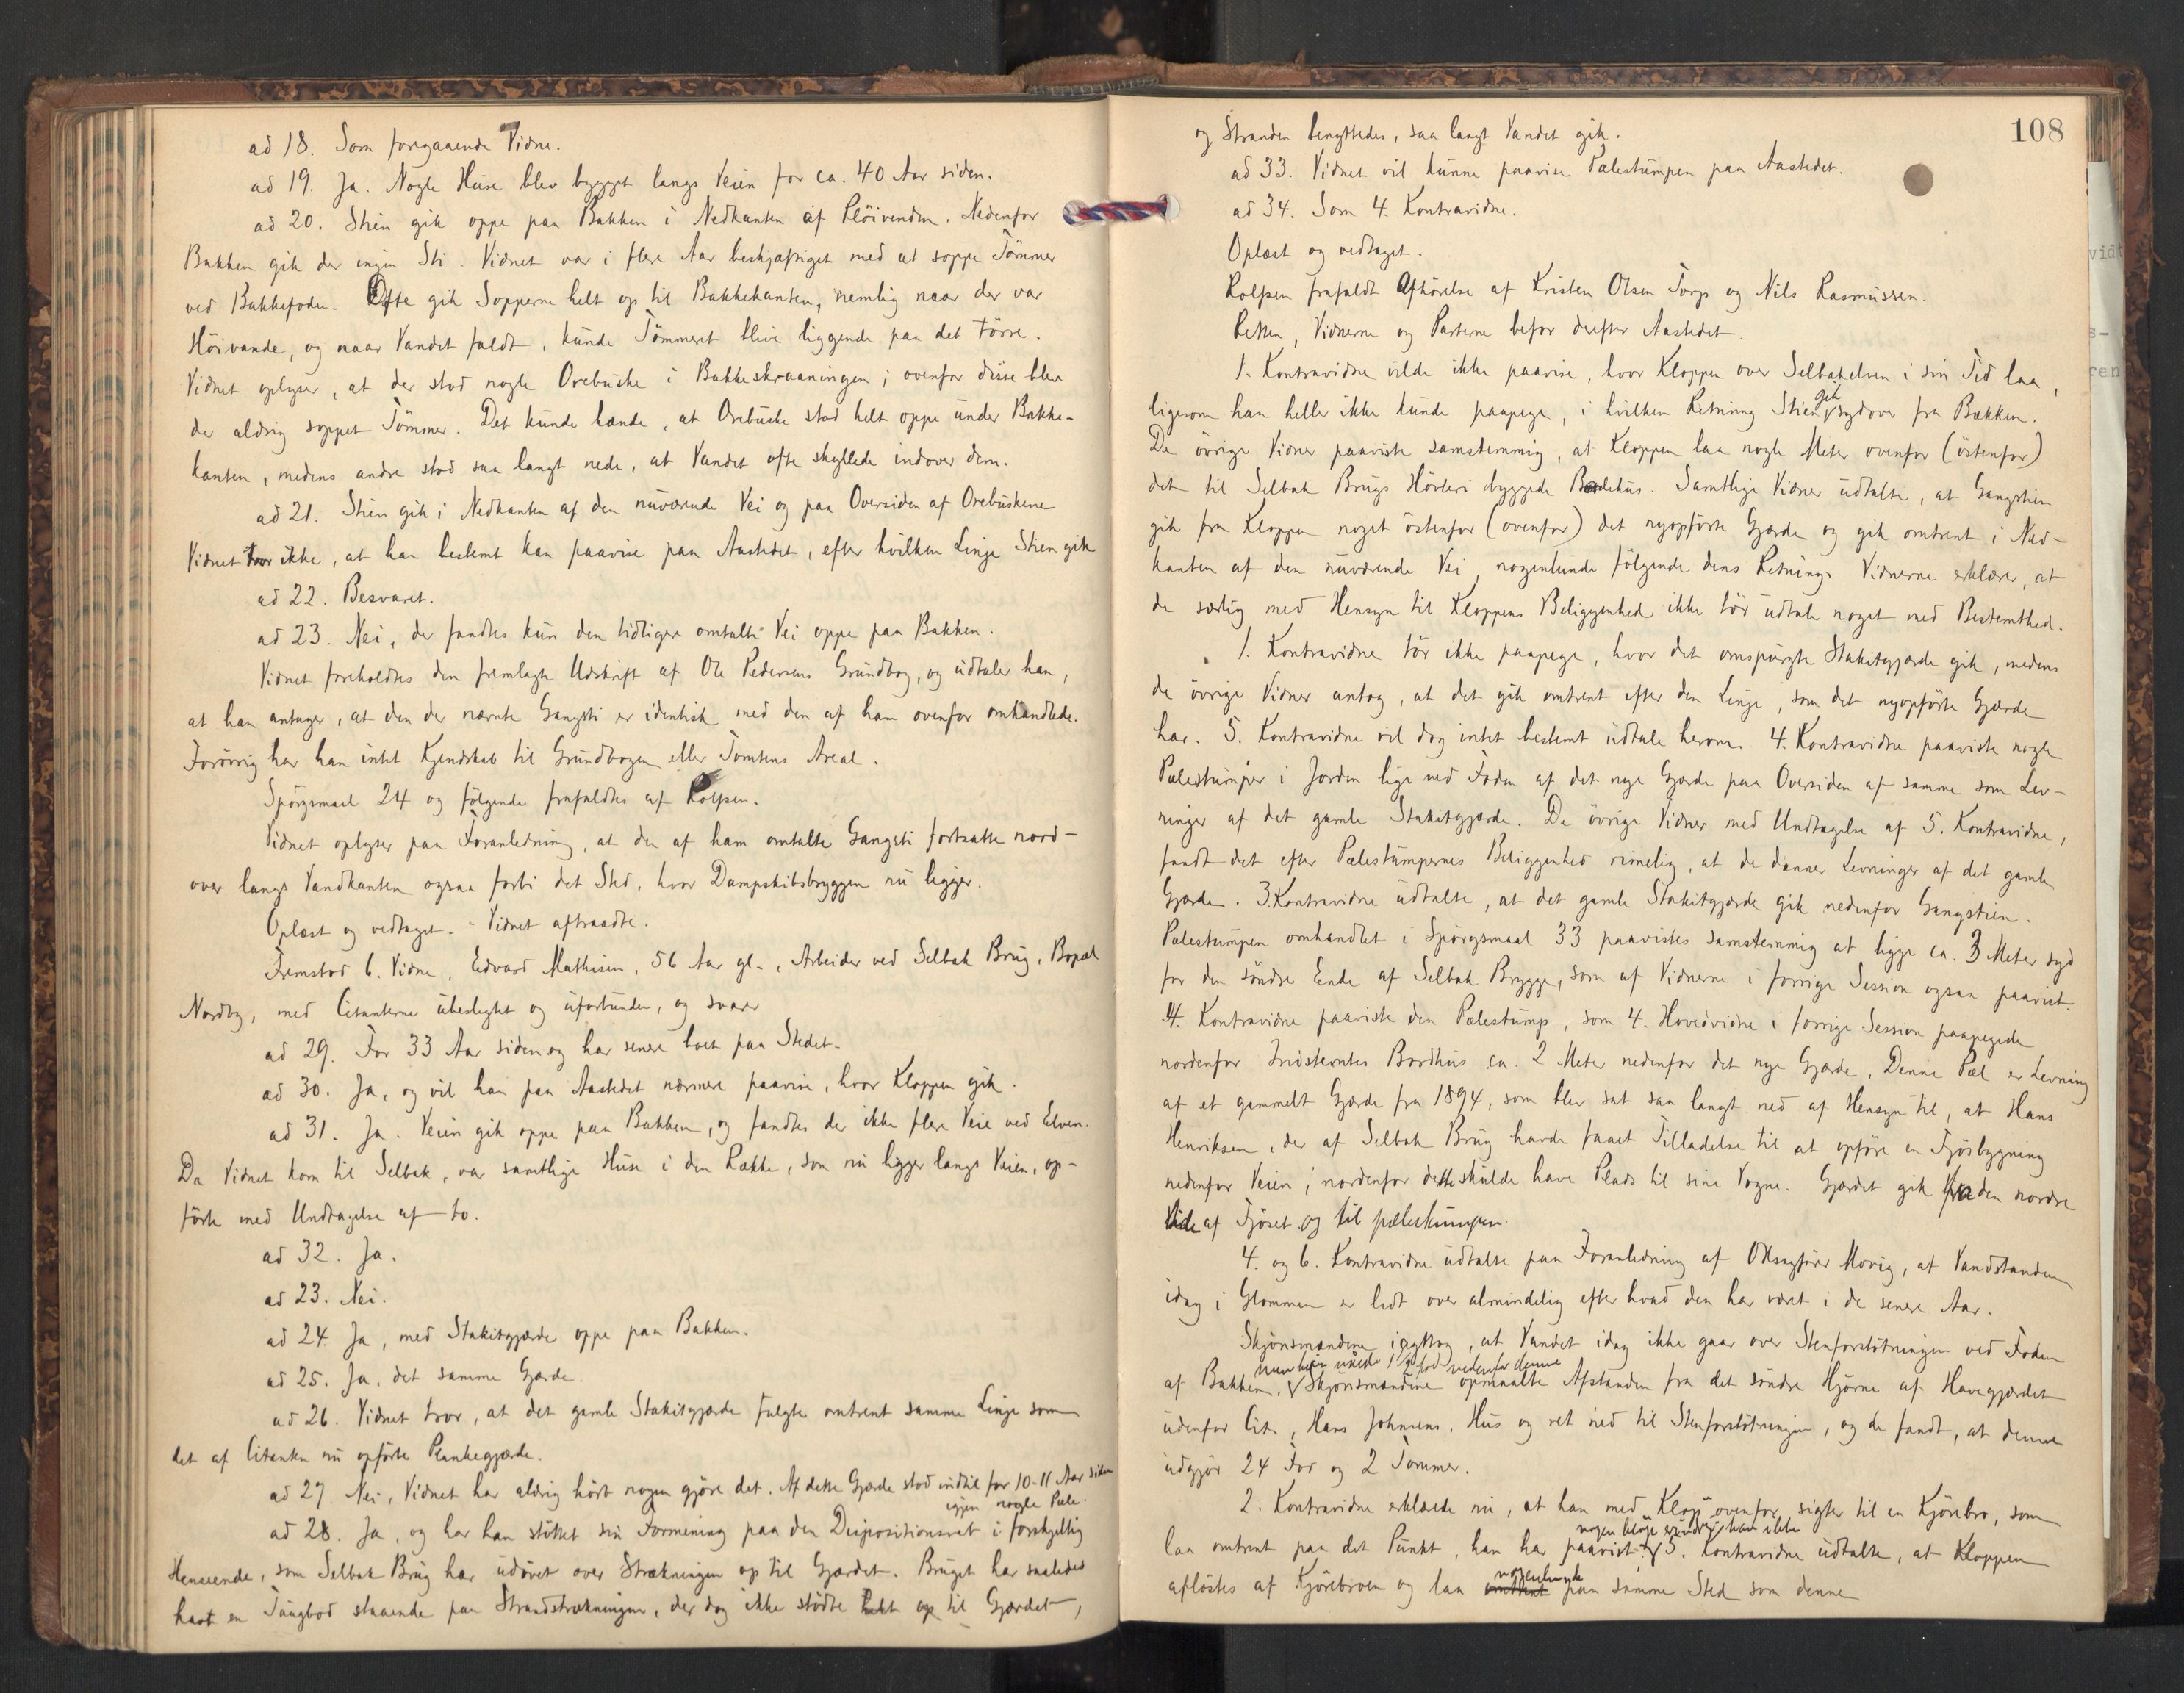 ad 18. Som foregaaende Vidne.
ad 19. Ja. Nogle Huse blev bygget langs Veien for ca. 40 Aar siden.
ad 20. Stien gik oppe paa Bakken i Nedkanten af Plöivenden. Nedenfor
Bakken gik der ingen Sti. Vidnet var i flere Aar beskjæftiget med at soppe Tömmer
ved Bakkefoden. Ofte gik Sopperne helt op til Bakkekanten, nemlig naar der var
Höivande, og naar Vandet faldt, kunde Tömmeret blive liggende paa det törre.
Vidnet oplyser, at der stod nogle Orebuske i Bakkeskraaningen; ovenfor disse blev
der aldrig soppet Tömmer. Det kunde hænde, at Orebuske stod helt oppe under Bakke-
kanten, medens andre stod saa langt nede, at Vandet ofte skyllede indover dem.
ad 21. Stien gik i Nedkanten af den nuværende Vei og paa Oversiden af Orebuskene
Vidnet tror ikke, at han bestemt kan paavise paa Aastedet, efter hvilken Linje Stien gik
ad 22. Besvaret.
ad 23. Nei, der fandtes kun den tidligere omtalte Vei oppe paa Bakken.
Vidnet foreholdtes den fremlagte Udskrift af Ole Pedersens Grundbog, og udtaler han,
at han antager, at den der nævnte Gangsti er identisk med den af ham ovenfor omhandlede.
Forövrig har han intet Kjendskab til Grundbogen eller Tomtens Areal.
Spörgsmaal 24 og fölgende frafaldtes af Rolfsen.
Vidnet oplyser paa Foranledning, at den af ham omtalte Gangsti fortsatte nord-
over langs Vandkanten ogsaa forbi det Sted, hvor Dampskibsbryggen nu ligger.
Oplæst og vedtaget. - Vidnet aftraadte.
Fremstod 6. Vidne, Edvard Mathisen, 56 Aar gl., Arbeider ved Selbak Brug, Bopæl
Nordby, med Citanterne ubeslegtet og uforbunden, og svarer
ad 29. For 33 Aar siden og har senere boet paa Stedet.
ad 30. Ja, og vil han paa Aastedet nærmere paavise, hvor Kloppen gik.
ad 31. Ja. Veien gik oppe paa Bakken, og fandtes der ikke flere Veie ved Elven.
Da Vidnet kom til Selbak, var samtlige Huse i den Række, som nu ligger langs Veien, op-
förte med Undtagelse af to.
ad 32. Ja.
ad 23. Nei.
ad 24. Ja, med Stakitgjærde oppe paa Bakken.
ad 25. Ja, det samme Gjærde.
ad 26. Vidnet tror, at det gamle Stakitgjærde fulgte omtrent samme Linje som
det af Citanten nu opförte Plankegjærde.
ad 27. Nei, Vidnet har aldrig hört nogen gjöre det. Af dette Gjærde stod indtil for 10-11 Aar siden
igjen nogle Pæle.
ad 28. Ja, og har han stöttet sin Formening paa den Dispositionsret i forskjellig
Henseende, som Selbak Brug har udövet over Strækningen op til Gjærdet. Bruget har saaledes
havt en Taugbod staaende paa Strandstrækningen, der dog ikke stödte helt op til Gjærdet,
108
og Stranden benyttedes, saa langt Vandet gik.
ad 33. Vidnet vil kunne paavise Pælestumpen paa Aastedet.
ad 34. Som 4. Kontravidne.
Oplæst og vedtaget.
Rolfsen frafaldt Afhörelse af Kristen Olsen Torp og Nils Rasmussen.
Retten, Vidnerne og Parterne befor derefter Aastedet.
1. Kontravidne vilde ikke paavise, hvor Kloppen over Selbakelven i sin Tid laa,
gik
ligesom han heller ikke kunde paapege, i hvilken Retning Stien sydover fra Bækken.
De övrige Vidner paaviste samstemmig, at Kloppen laa nogle Meter ovenfor (östenfor)
det til Selbak Brugs Hövleri byggede Bordehus. Samtlige Vidner udtalte, at Gangstien
gik fra Kloppen noget östenfor (ovenfor) det nyopförte Gjærde og gik omtrent i Ned-
kanten af den nuværende Vei, nogenlunde fölgende dens Retning. Vidnerne erklærer, at
de særlig med Hensyn til Kloppens Beliggenhed ikke tör udtale noget med Bestemthed.
1. Kontravidne tör ikke paapege, hvor det omspurgte Stakitgjærde gik, medens
de övrige Vidner antog, at det gik omtrent efter den Linje, som det nyopförte Gjærde
har. 5. Kontravidne vil dog intet bestemt udtale herom. 4. Kontravidne paaviste nogle
Pælestumper i Jorden lige ved Foden af det nye Gjærde paa Oversiden af samme som Lev-
ninger af det gamle Stakitgjærde. De övrige Vidner med Undtagelse af 5. Kontravidne,
fandt det efter Pælestumpernes Beliggenhed rimelig, at de danner Levninger af det gamle
Gjærde. 3. Kontravidne udtalte, at det gamle Stakitgjærde gik nedenfor Gangstien.
Pælestumpen omhandlet i Spörgsmaal 33 paavistes samstemmig at ligge ca. 3 Meter syd
for den söndre Ende af Selbak Brygge, som af Vidnerne i forrige Session ogsaa paavist.
4. Kontravidne paaviste den Pælestump, som 4. Hovedvidne i forrige Session paapegede
nordenfor Indstevntes Bordhus ca. 2 Meter nedenfor det nye Gjærde. Denne Pæl er Levning
af et gammelt Gjærde fra 1894, som blev sat saa langt ned af Hensyn til, at Hans
Henriksen, der af Selbak Brug havde faaet Tilladelse til at opföre en Fjösbygning
nedenfor Veien, nordenfor dette skulde have Plads til sine Vogne. Gjærdet gik fra den nordre
Side af Fjöset og til pælestumpen.
4. og 6. Kontravidne udtalte paa Foranledning af ORsagförer Movig, at Vandstanden
idag i Glommen er lidt over almindelig efter hvad den har været i de senere Aar.
Skjönsmændene iagttog, at Vandet idag ikke gaar over Stenforstötningen ved Foden
1 fod nedenfor denne
af Bakken. Skjönsmændene opmaalte Afstanden fra det söndre Hjörne af Havegjærdet
udenfor Cit., Hans Johnsens, Hus og ret ned til Stenforstötningen, og de fandt, at denne
udgjör 24 Fod og 2 Tommer.
2. Kontravidne erklærede nu, at han med "Klop" ovenfor sigter til en Kjörebro, som
nogen klop erindrer han ikke
laa omtrent paa det Punkt, han har paavist. 5. Kontravidne udtalte, at Kloppen
nogenlunde
aflöstes af Kjörebroen og laa omtrent paa samme Sted som denne